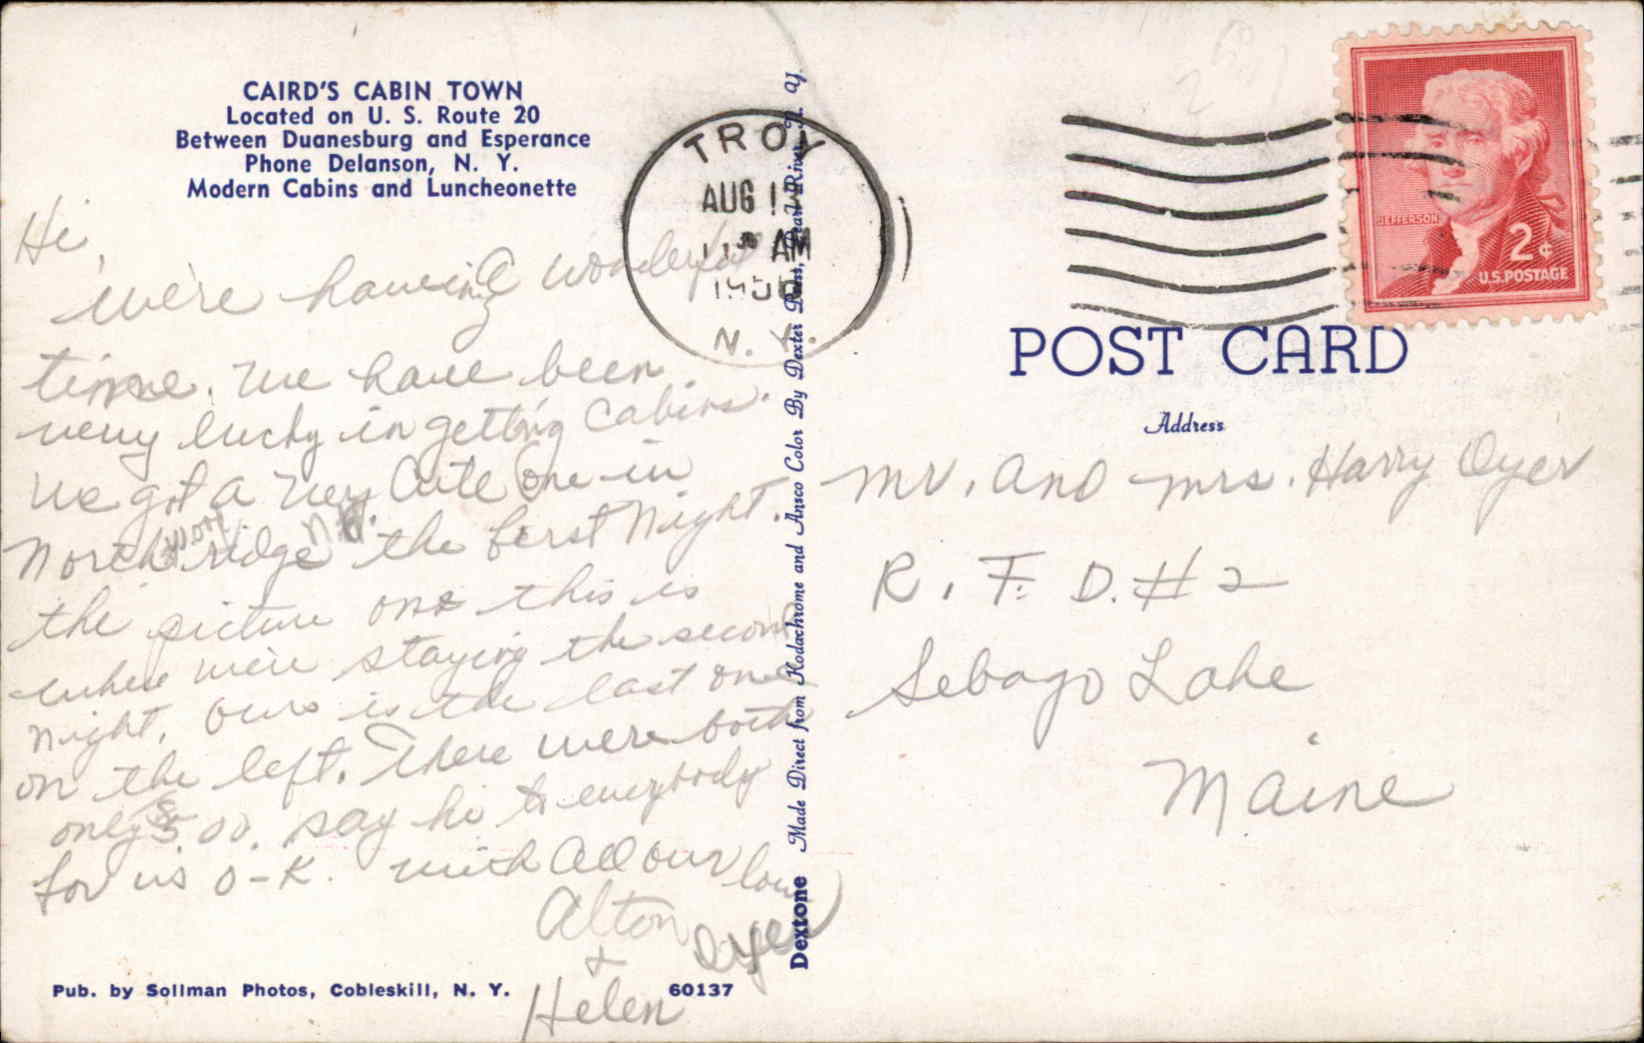 CAIRD'S CABIN TOWN
Located on U. S. Route 20
Between Duanesburg and Esperance
Phone Delanson, N. Y.
Modern Cabins and Luncheonette
Hi,
we're having a wonderful
time. We have been
very lucky in getting cabins.
We got a very cute one in
North ridge the first night.
the picture one this is
where we're staying the second
night. Ours is the last one
on the left. There were both
only 5.00. say hi to everybody
for us O-K. with all our love
Alton Dyer
+
Helen
Pub. by Sollman Photos, Cobleskill, N. Y.
60137
Dextone Made Direct from Kodachrome and Ansco Color By Dexter Press, Pearl River, N. Y.
TROY
AUG
AM
N. Y.
JEFFERSON
2¢
U.S. POSTAGE
POST CARD
Address
Mr. and Mrs. Harry Dyer
R. F. D. # 2
Sebago Lake
Maine